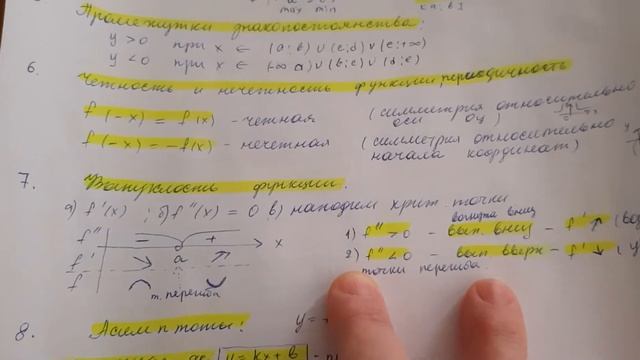 max min
Промежутки знакопостоянства:
y > 0 при x ∈ (a; b) ∪ (c; d) ∪ (e; +∞)
y < 0 при x ∈ (-∞ a) ∪ (b; c) ∪ (d; e)
6.
Четность и нечетность функции, периодичность
f(-x) = f(x) - четная (симметрия относительно оси оу)
f(-x) = -f(x) - нечетная (симметрия относительно начала координат)
7.
Выпуклость функции.
а) f'(x) ; б) f''(x) = 0 в) находим крит. точки
вогнута вниз
1) f'' > 0 - вып. вниз - f' ↑
2) f'' < 0 - вып. вверх - f' ↓
точки перегиба.
f'' - + x
f' a
f т. перегиба
8.
Асимптоты:
y = kx + b